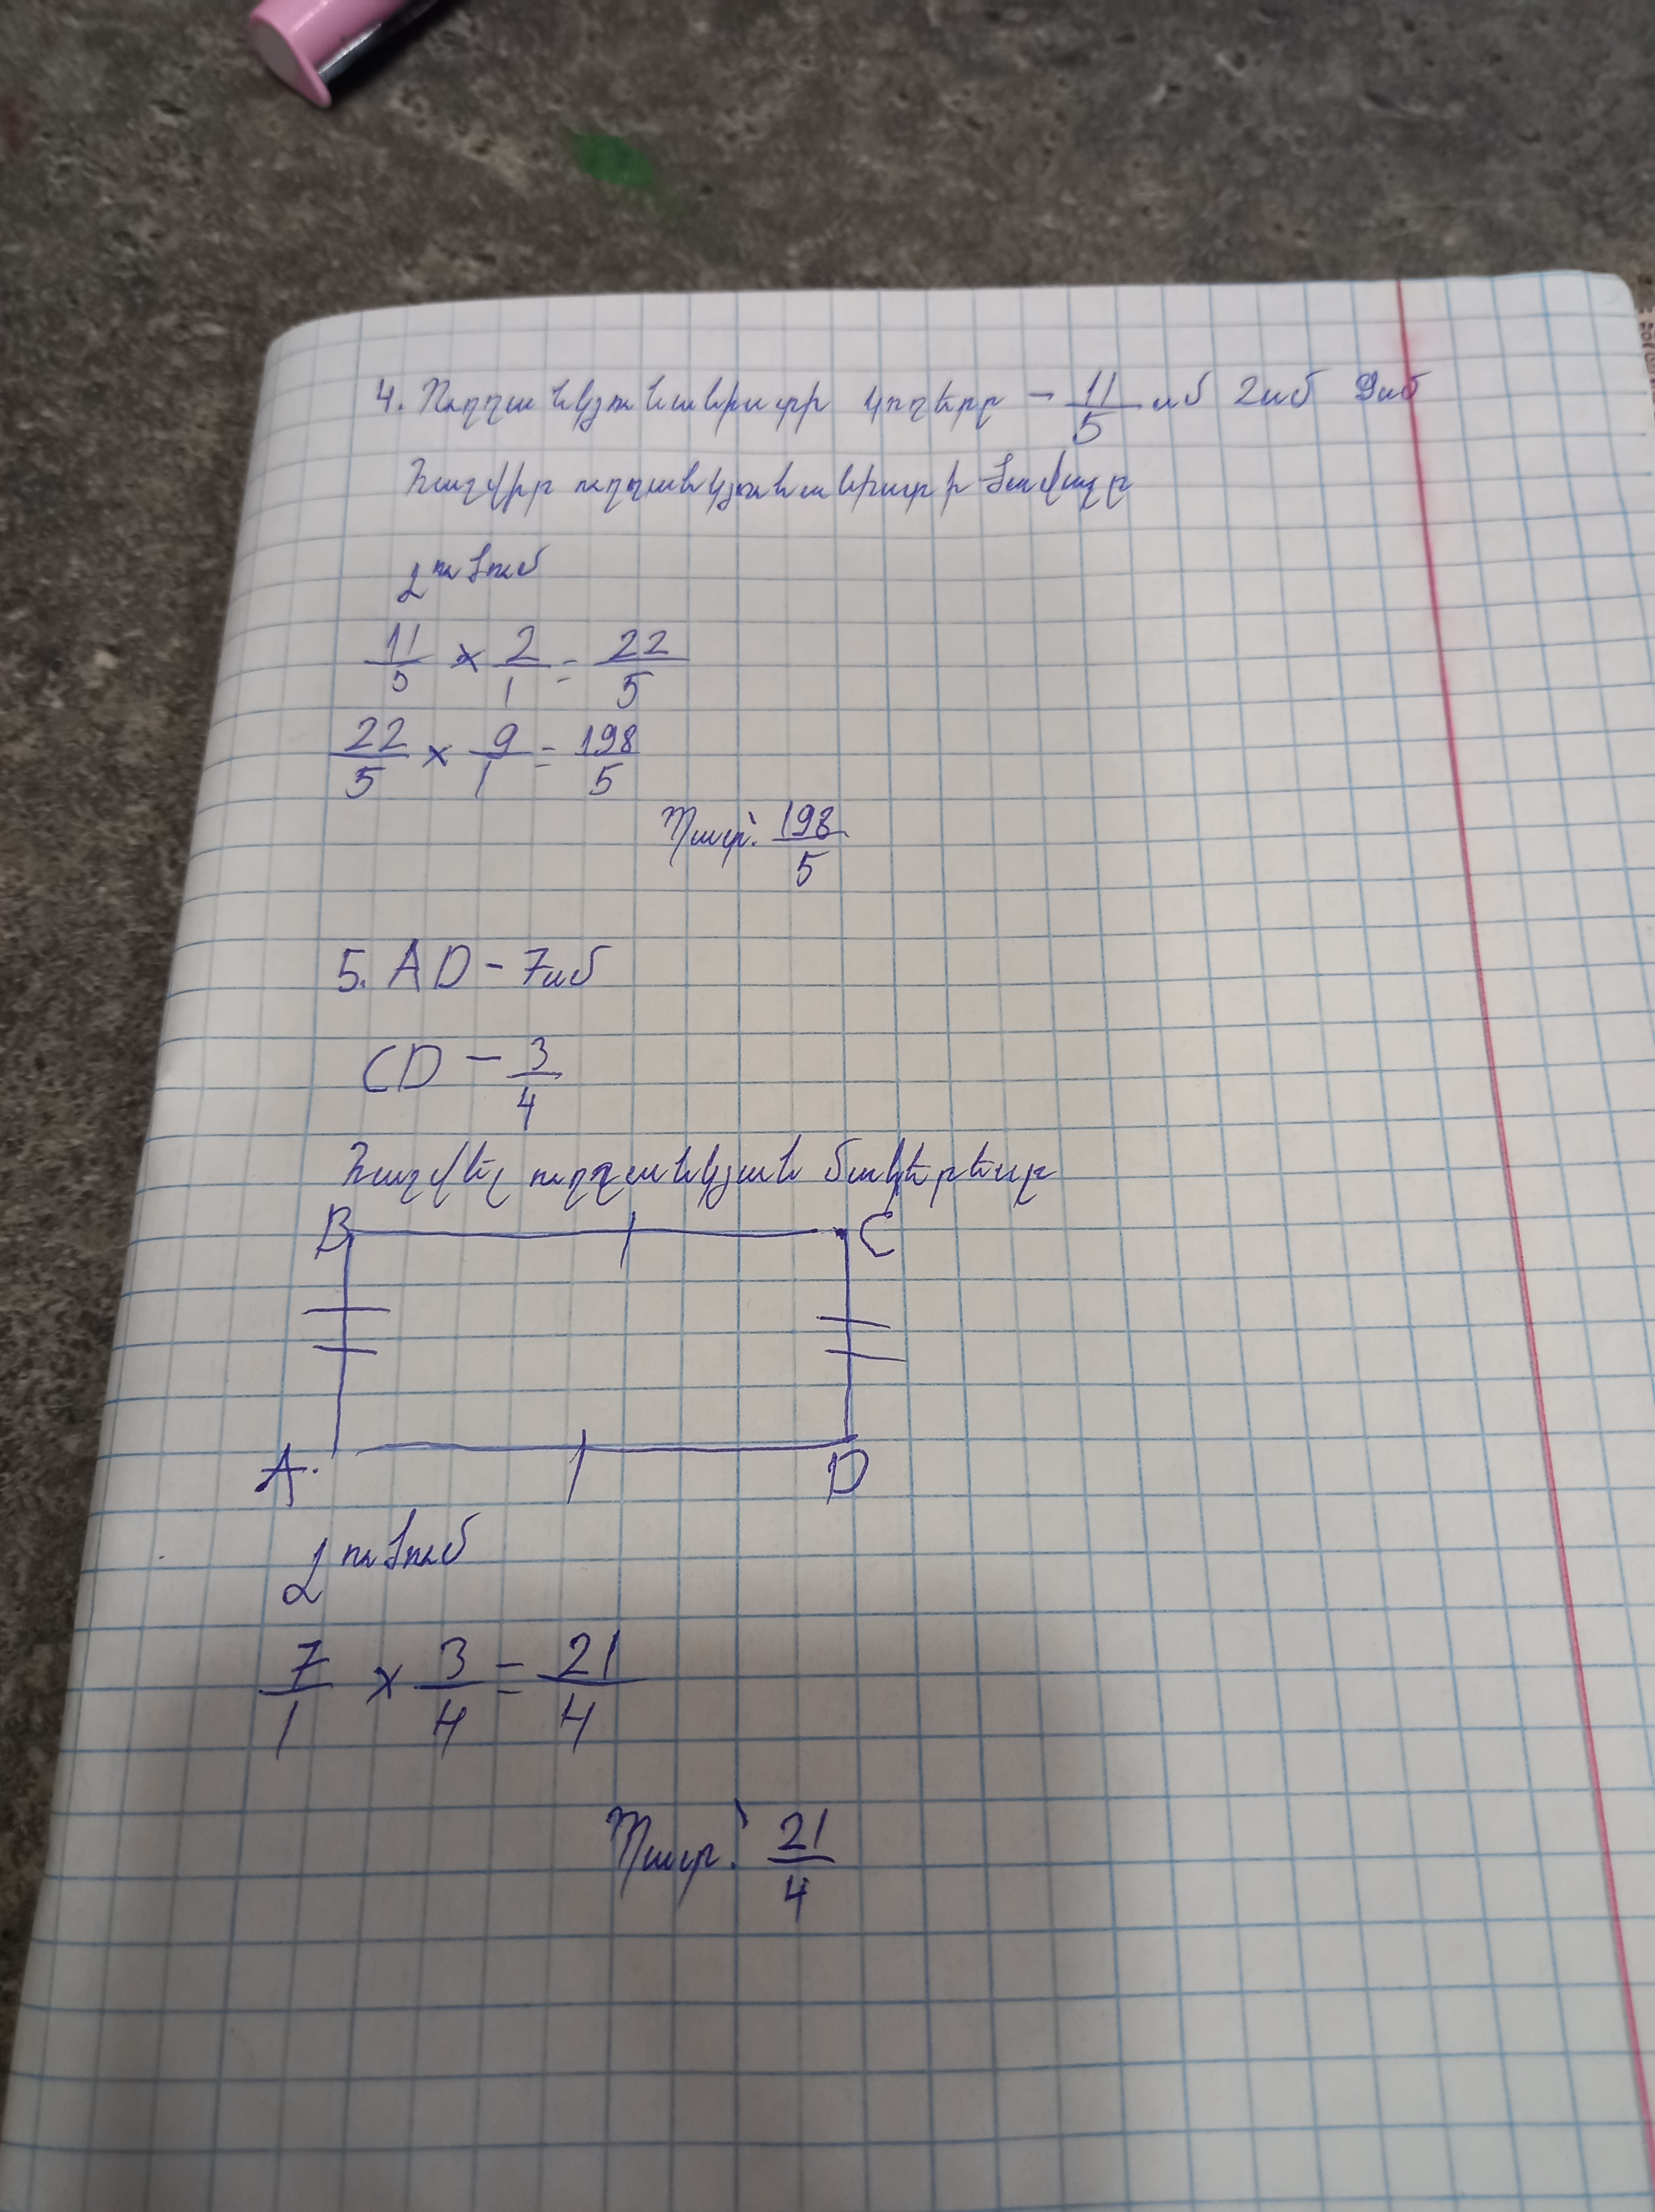 4. Ուղղանկյունանիստի կողերը - 11/5 սմ 2սմ 9սմ
Հաշվիր ուղղանկյունանիստի ծավալը
Լուծում
11/5 × 2/1 = 22/5
22/5 × 9/1 = 198/5
Պատ՝. 198/5
5. AD - 7սմ
CD - 3/4
Հաշվել ուղղանկյան մակերեսը
B C
A. D
Լուծում
7/1 × 3/4 = 21/4
Պատ.՝ 21/4